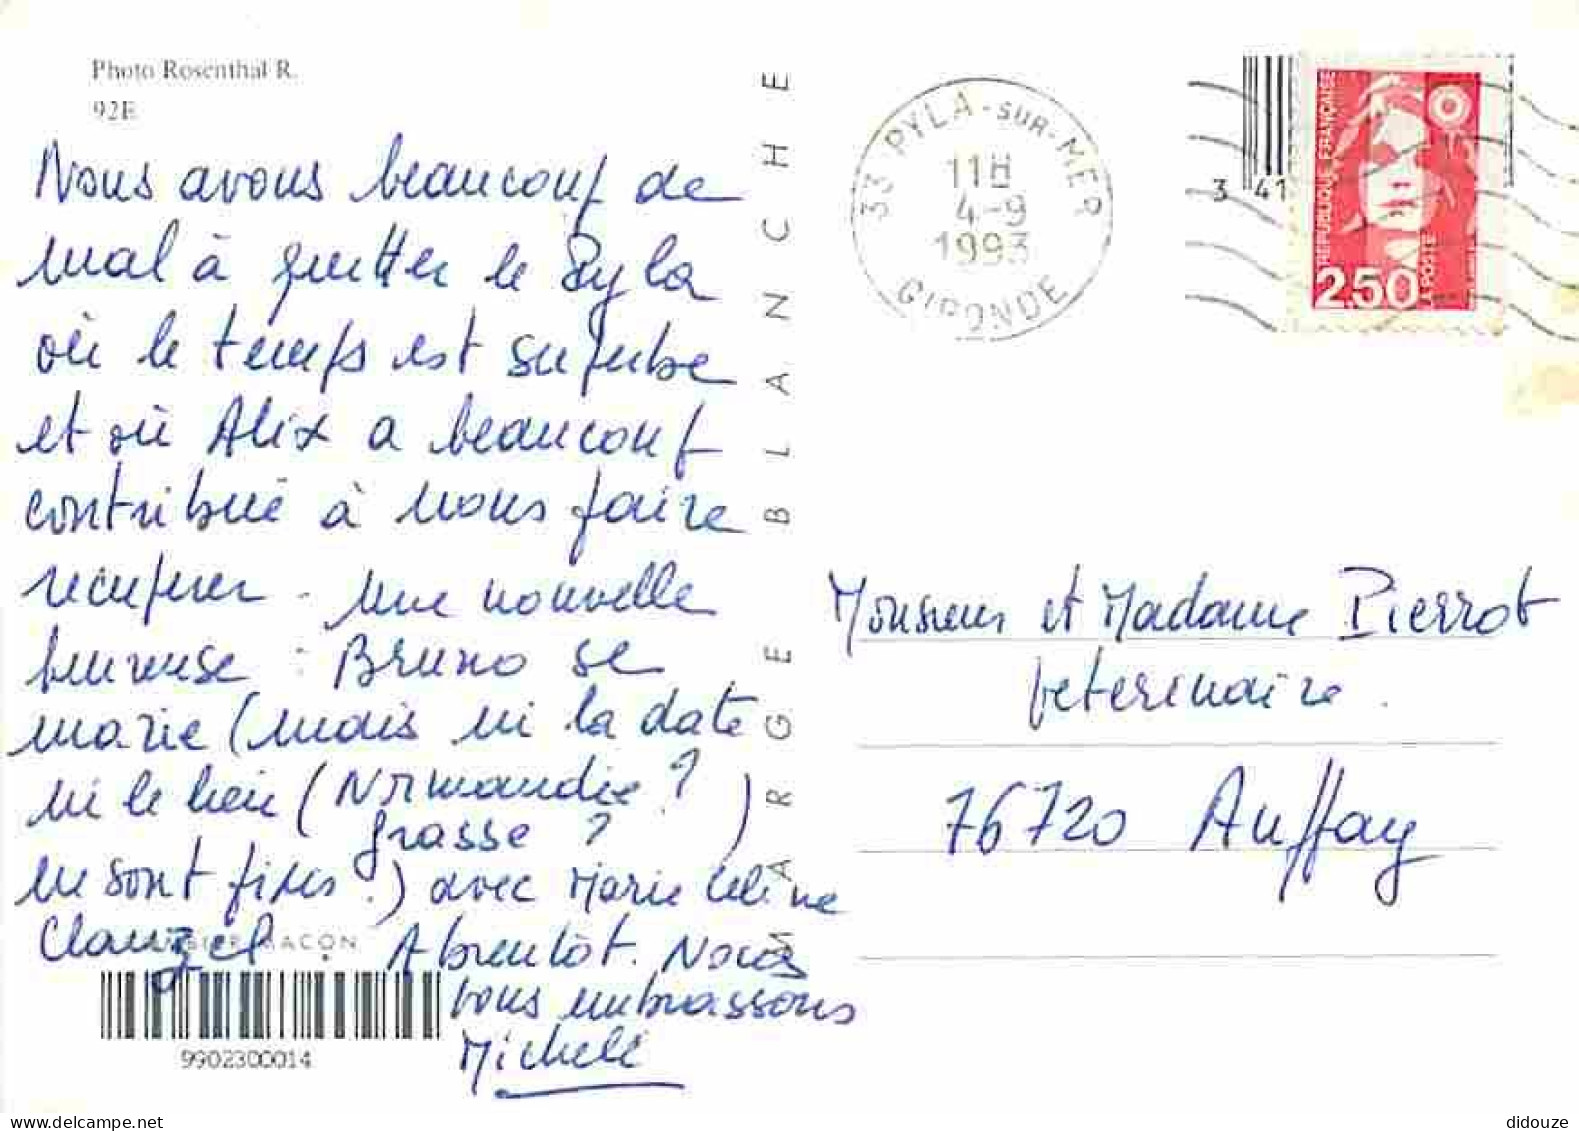 Photo Rosenthal R.
92E
Nous avons beaucoup de
mal à quitter le Pyla
où le temps est superbe
et où Alix a beaucoup
contribué à nous faire
recuperer. Une nouvelle
heureuse : Bruno se
marie (mais ni la date
ni le lieu (Normandie ?
Grasse ? )
ne sont fixés.) avec Marie Celine
Clauzel A bientôt. Nous
vous embrassons
Michelle
MAÇON
9902300014
MARGE BLANCHE
33 PYLA-SUR-MER
11H
4-9
1993
GIRONDE
3 41
RÉPUBLIQUE FRANÇAISE
2,50
LA POSTE
Monsieur et Madame Pierrot
veterinaire.
76720 Auffay
delcampe.net
didouze